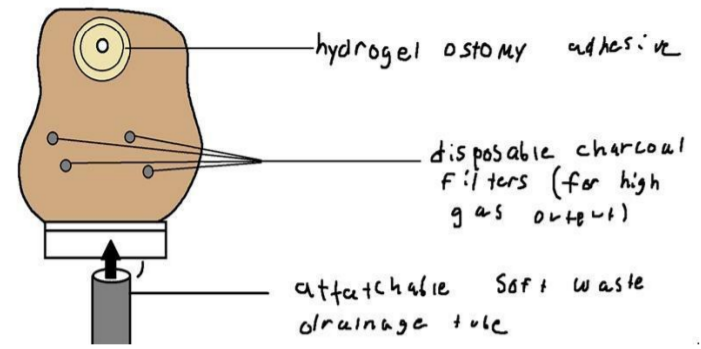 hydrogel ostomy adhesive
disposable charcoal
filters (for high
gas output)
attatchable soft waste
drainage tube